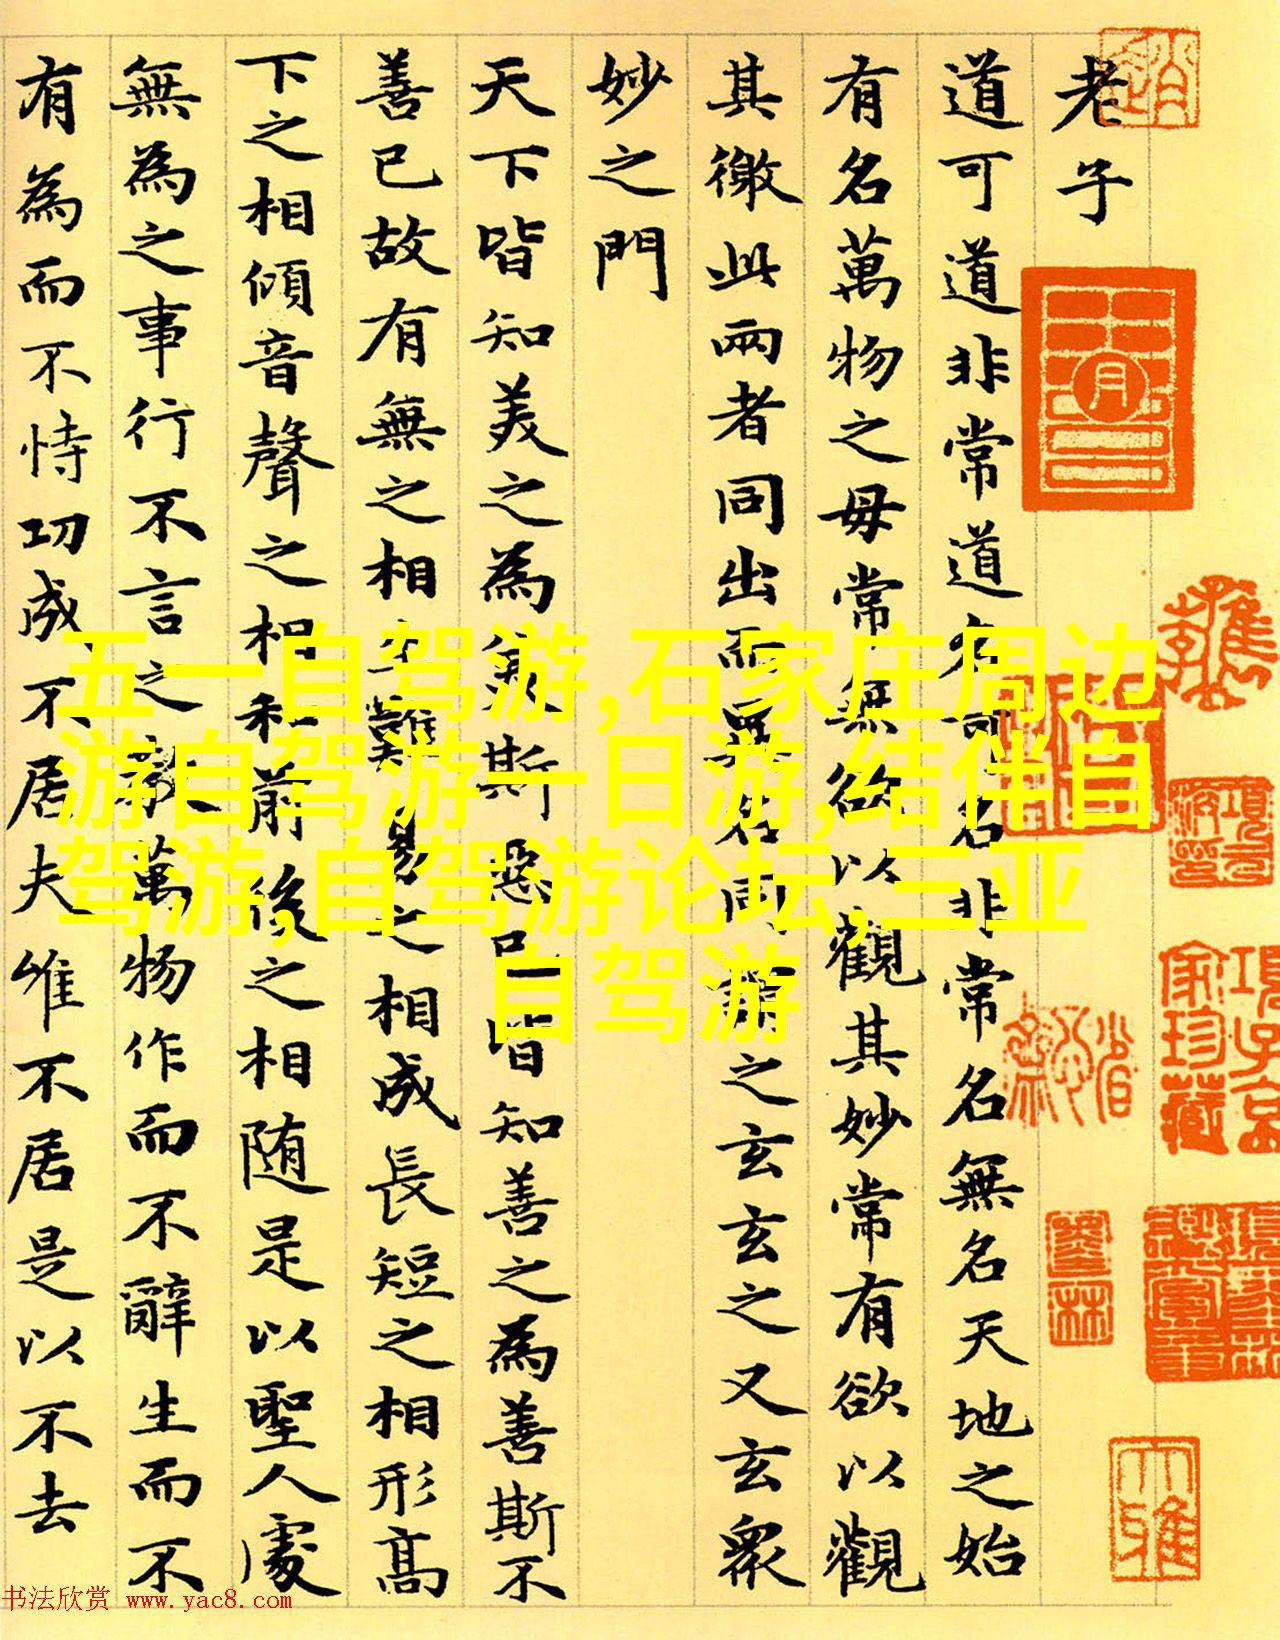 老子
道可道非常道名可名非常名無名天地之始
有名萬物之毋常無欲以觀其妙常有欲以觀
其徼此兩者同出而異名同謂之玄玄之又玄衆
妙之門
天下皆知美之為美斯惡已皆知善之為善斯不
善已故有無之相生難易之相成長短之相形高
下之相傾音聲之相和前後之相随是以聖人處
無為之事行不言之教萬物作而不辭生而不
有為而不恃功成不居夫唯不居是以不去
五一自驾游,石家庄周边
游自驾游一日游,结伴自
驾游,自驾游论坛,三亚
自驾游
項子京
家珍藏
书法欣赏 www.yac8.com